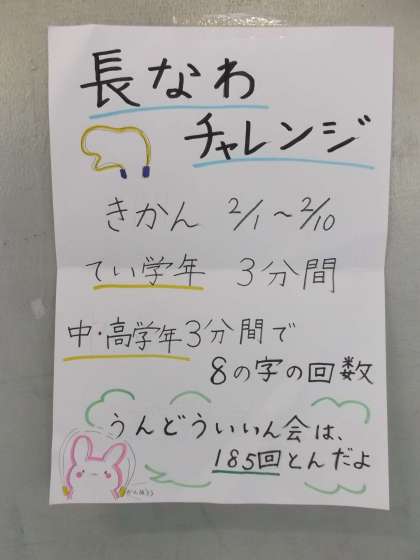 長なわ
チャレンジ
きかん 2/1～2/10
てい学年 3分間
中・高学年3分間で
8の字の回数
うんどういいん会は、
185回とんだよ
がんばろう